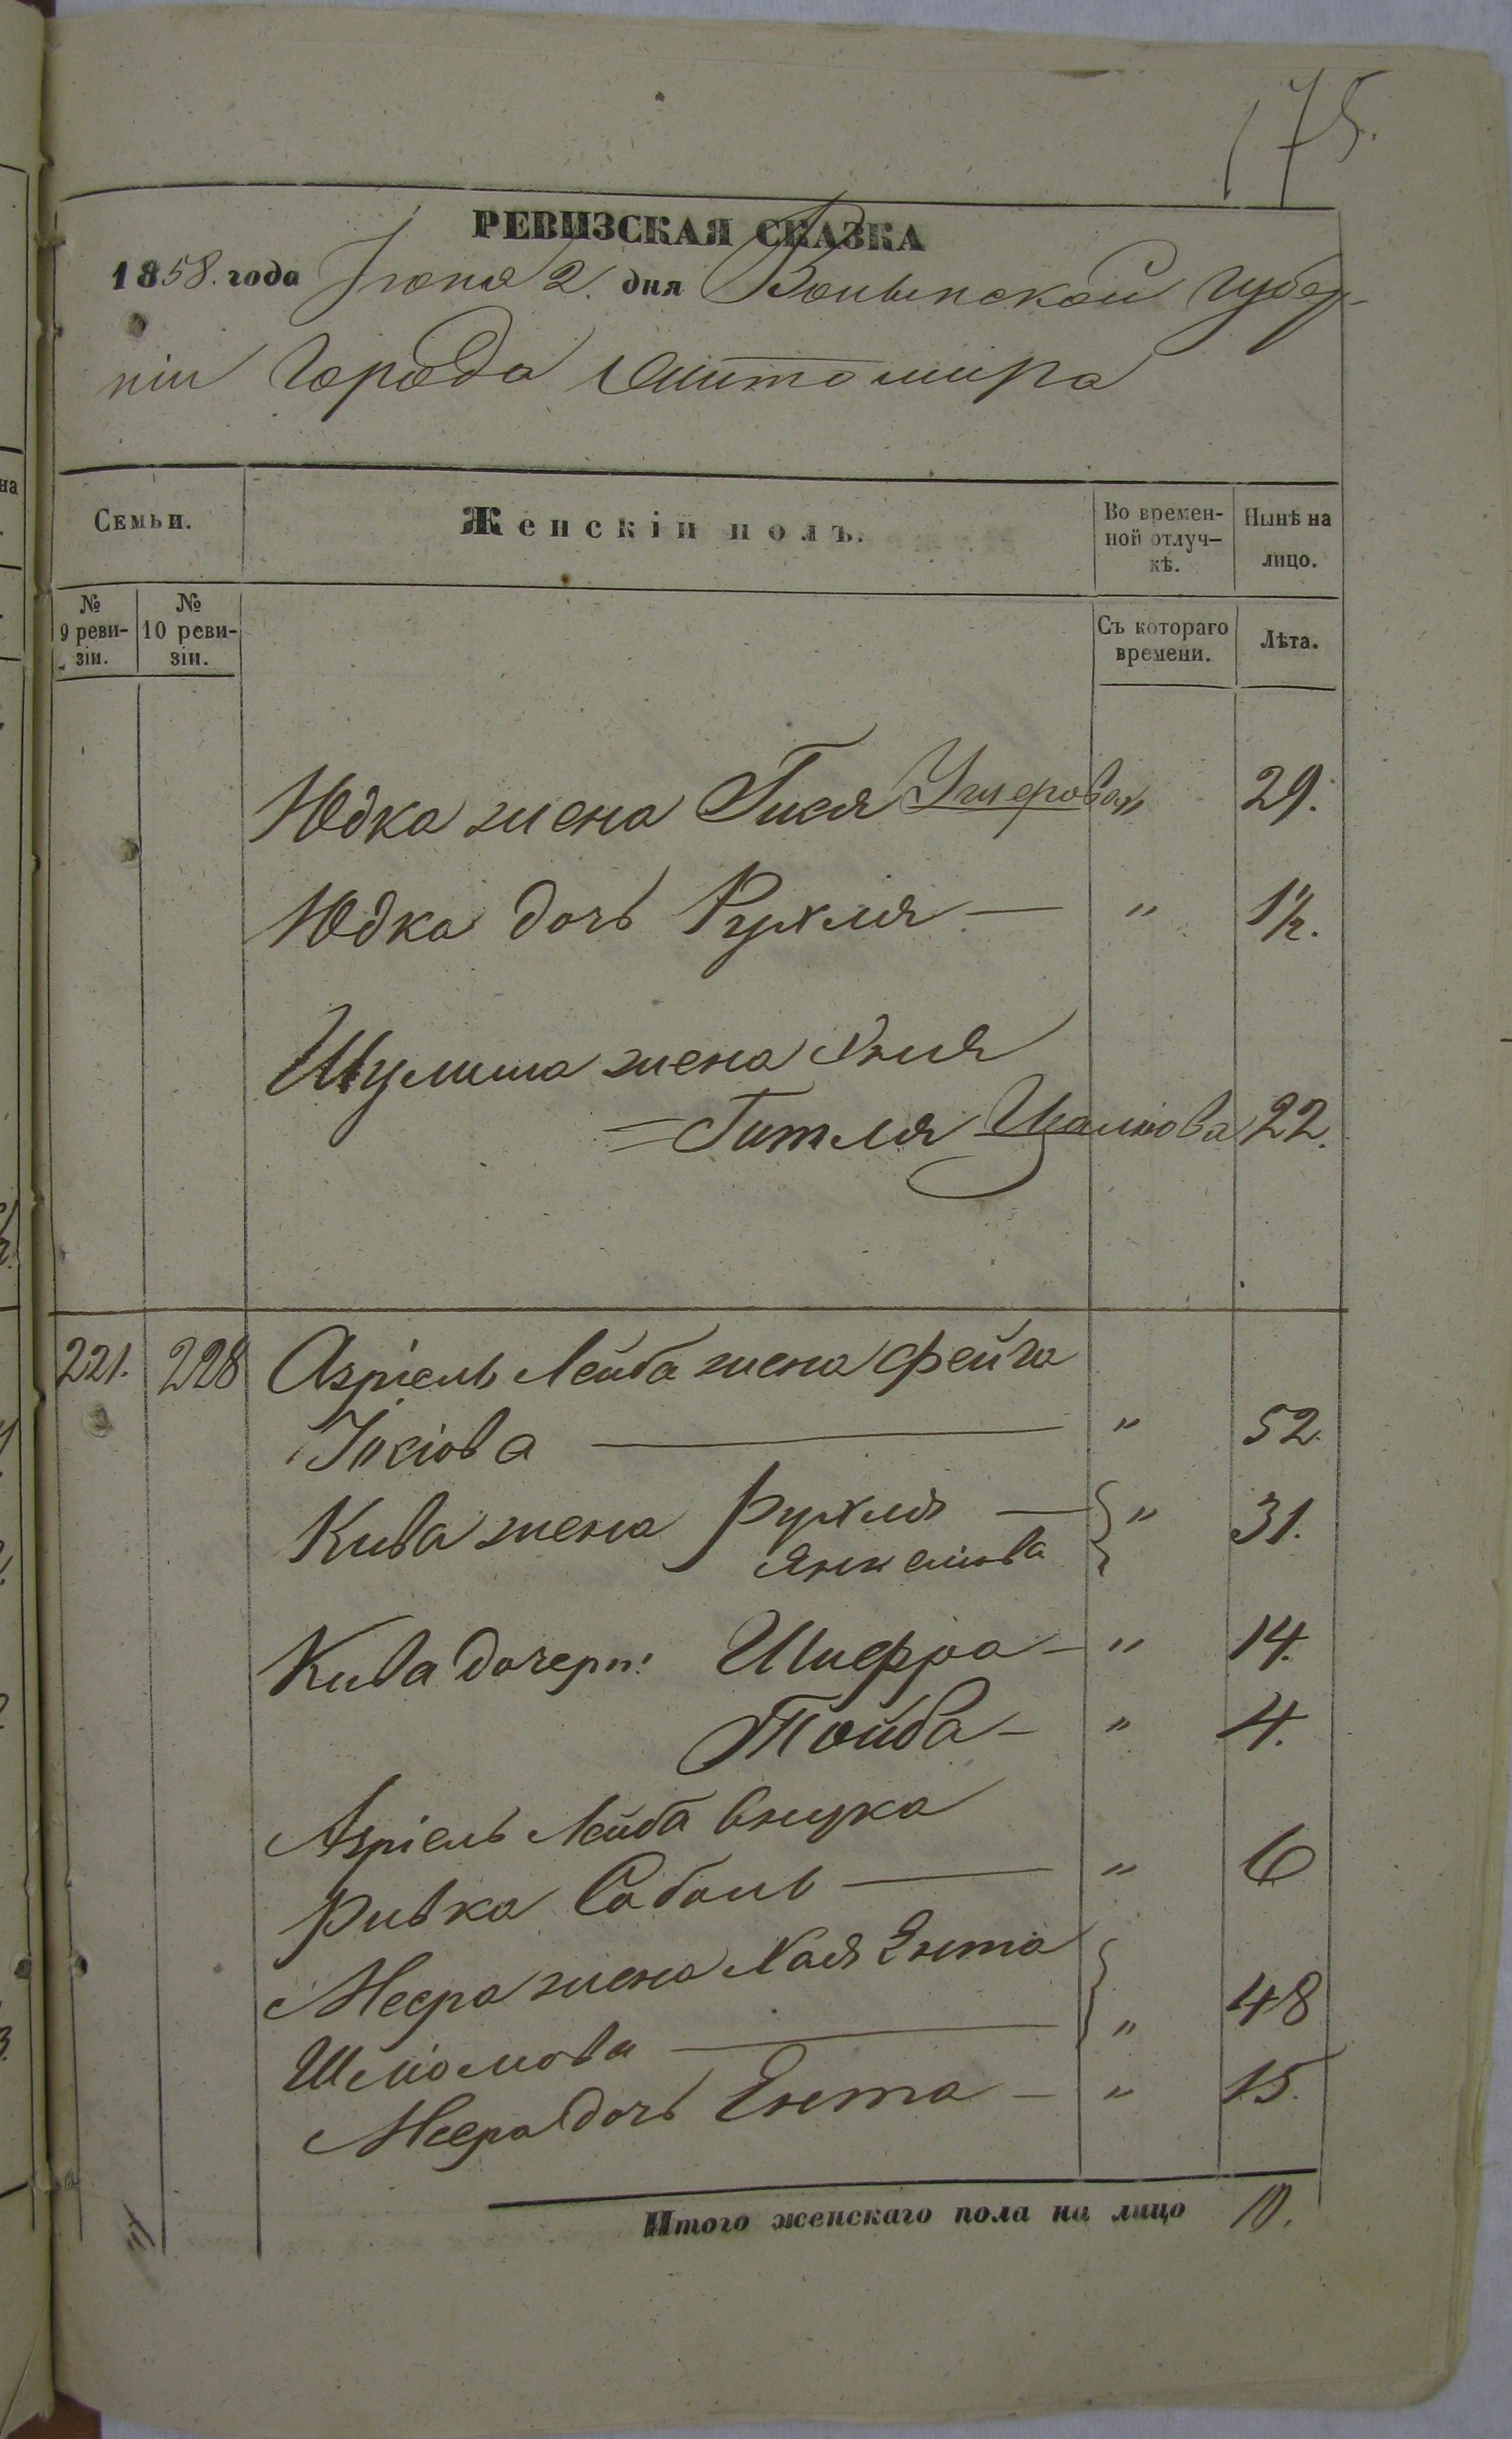 175.
РЕВИЗСКАЯ СКАЗКА
1858. года Іюня 2. дня Волынской Губер-
ніи Города Житомира
Семьи.
Женскій полъ.
Во времен-
ной отлуч-
кѣ.
Нынѣ на
лицо.
№
9 реви-
зіи.
№
10 реви-
зіи.
Съ котораго
времени.
Лѣта.
Юдка жена Гися Ушерова „ 29.
Юдка дочь Рухля — „ 1½.
Шулима жена
= Гитля Цалкова 22.
221. 228 Азріель Лейба жена Фейга
Іосіова — „ 52.
Кива жена Рухля — „ 31.
Янкелiова
Кива дочери: Шифра — „ 14.
Тойба — „ 4.
Азріель Лейба внука
Ривка Соболь — „ 6
Меера жена Хая Ента
Шліомова — „ 48
Меера дочь Ента — „ 15.
Итого женскаго пола на лицо 10.